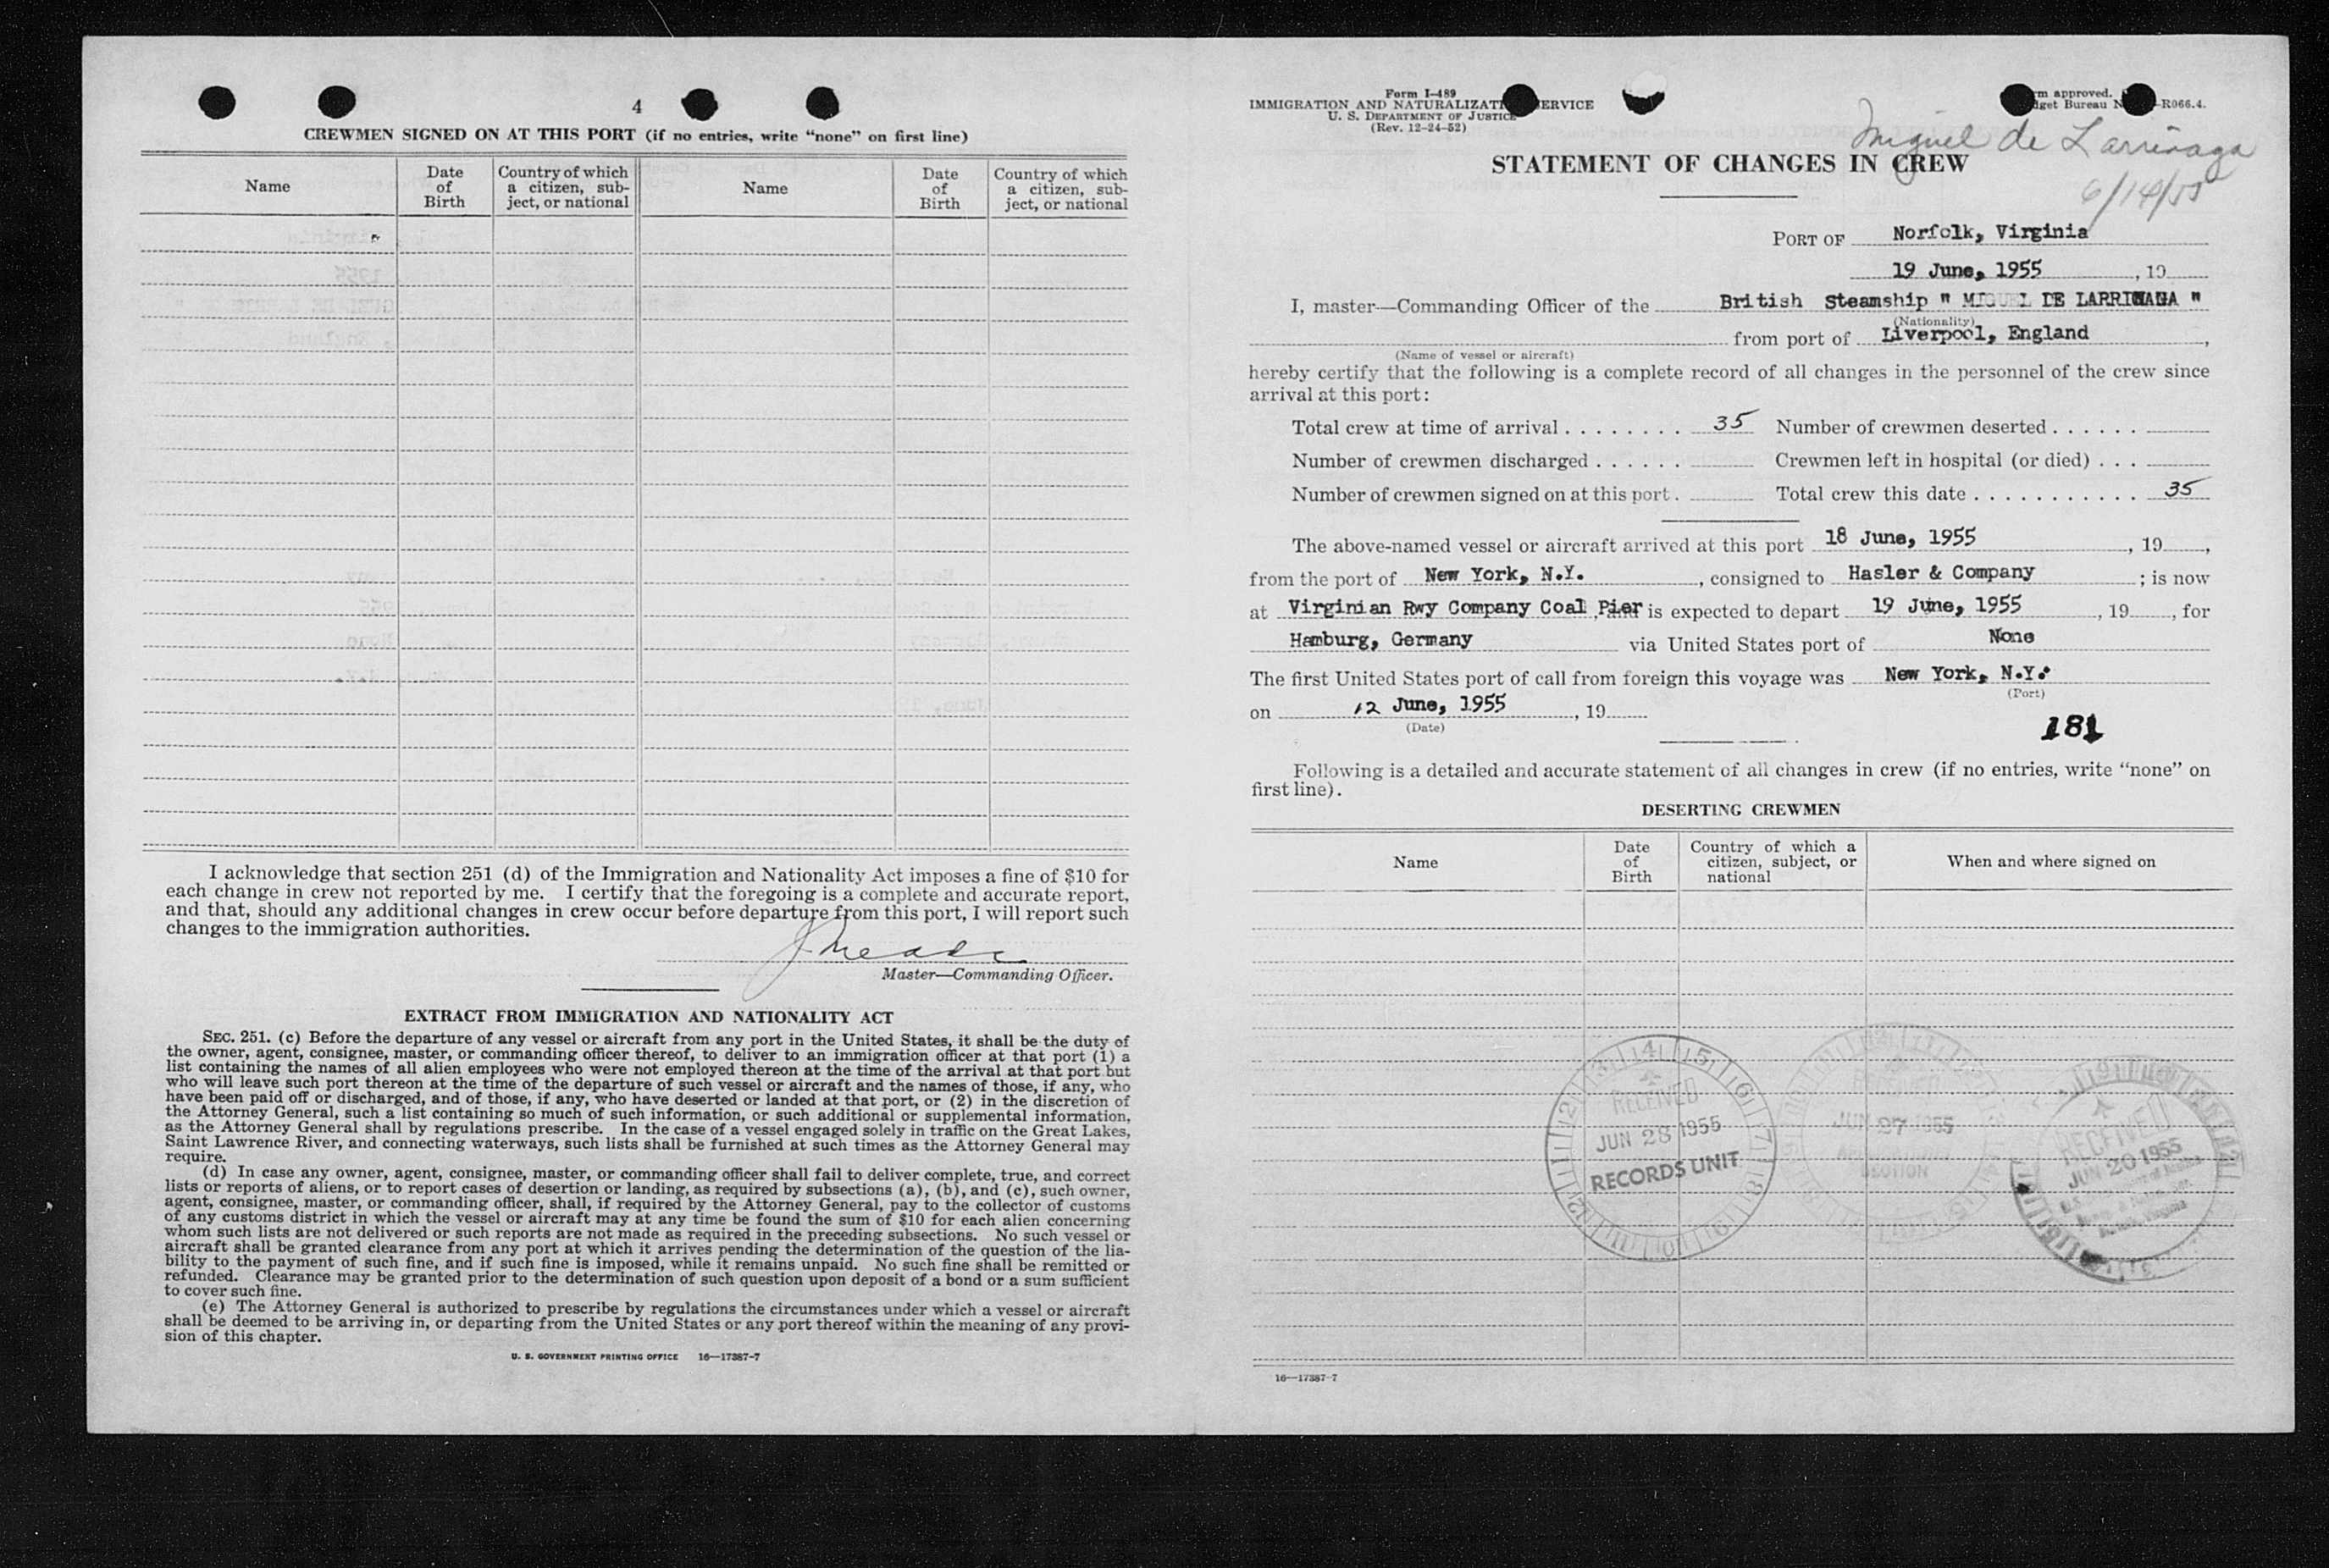 4
CREWMEN SIGNED ON AT THIS PORT (if no entries, write “none” on first line)
Name
Date
of
Birth
Country of which
a citizen, sub-
ject, or national
Name
Date
of
Birth
Country of which
a citizen, sub-
ject, or national
I acknowledge that section 251 (d) of the Immigration and Nationality Act imposes a fine of $10 for
each change in crew not reported by me. I certify that the foregoing is a complete and accurate report,
and that, should any additional changes in crew occur before departure from this port, I will report such
changes to the immigration authorities.
Master—Commanding Officer.
EXTRACT FROM IMMIGRATION AND NATIONALITY ACT
SEC. 251. (c) Before the departure of any vessel or aircraft from any port in the United States, it shall be the duty of
the owner, agent, consignee, master, or commanding officer thereof, to deliver to an immigration officer at that port (1) a
list containing the names of all alien employees who were not employed thereon at the time of the arrival at that port but
who will leave such port thereon at the time of the departure of such vessel or aircraft and the names of those, if any, who
have been paid off or discharged, and of those, if any, who have deserted or landed at that port, or (2) in the discretion of
the Attorney General, such a list containing so much of such information, or such additional or supplemental information,
as the Attorney General shall by regulations prescribe. In the case of a vessel engaged solely in traffic on the Great Lakes,
Saint Lawrence River, and connecting waterways, such lists shall be furnished at such times as the Attorney General may
require.
(d) In case any owner, agent, consignee, master, or commanding officer shall fail to deliver complete, true, and correct
lists or reports of aliens, or to report cases of desertion or landing, as required by subsections (a), (b), and (c), such owner,
agent, consignee, master, or commanding officer, shall, if required by the Attorney General, pay to the collector of customs
of any customs district in which the vessel or aircraft may at any time be found the sum of $10 for each alien concerning
whom such lists are not delivered or such reports are not made as required in the preceding subsections. No such vessel or
aircraft shall be granted clearance from any port at which it arrives pending the determination of the question of the lia-
bility to the payment of such fine, and if such fine is imposed, while it remains unpaid. No such fine shall be remitted or
refunded. Clearance may be granted prior to the determination of such question upon deposit of a bond or a sum sufficient
to cover such fine.
(e) The Attorney General is authorized to prescribe by regulations the circumstances under which a vessel or aircraft
shall be deemed to be arriving in, or departing from the United States or any port thereof within the meaning of any provi-
sion of this chapter.
U. S. GOVERNMENT PRINTING OFFICE 16—17387-7
Form I-489
IMMIGRATION AND NATURALIZATI ERVICE
U. S. DEPARTMENT OF JUSTICE
(Rev. 12-24-52)
m approved.
get Bureau N -R066.4.
Miguel de Larrinaga
6/14/55
STATEMENT OF CHANGES IN CREW
PORT OF Norfolk, Virginia
19 June, 1955 , 19
I, master—Commanding Officer of the British Steamship " MIGUEL DE LARRINAGA "
(Nationality)
from port of Liverpool, England ,
(Name of vessel or aircraft)
hereby certify that the following is a complete record of all changes in the personnel of the crew since
arrival at this port:
Total crew at time of arrival . . . . . . . . 35 Number of crewmen deserted . . . . . .
Number of crewmen discharged . . . . . . Crewmen left in hospital (or died) . . .
Number of crewmen signed on at this port . Total crew this date . . . . . . . . . . . 35
The above-named vessel or aircraft arrived at this port 18 June, 1955 , 19 ,
from the port of New York, N.Y. , consigned to Hasler & Company ; is now
at Virginian Rwy Company Coal Pier , and is expected to depart 19 June, 1955 , 19 , for
Hamburg, Germany via United States port of None
The first United States port of call from foreign this voyage was New York, N.Y.
(Port)
on 12 June, 1955 , 19
(Date)
181
Following is a detailed and accurate statement of all changes in crew (if no entries, write “none” on
first line).
DESERTING CREWMEN
Name
Date
of
Birth
Country of which a
citizen, subject, or
national
When and where signed on
RECEIVED
JUN 28 1955
RECORDS UNIT
RECEIVED
JUN 27 1955
SECTION
RECEIVED
JUN 20 1955
16—17387-7